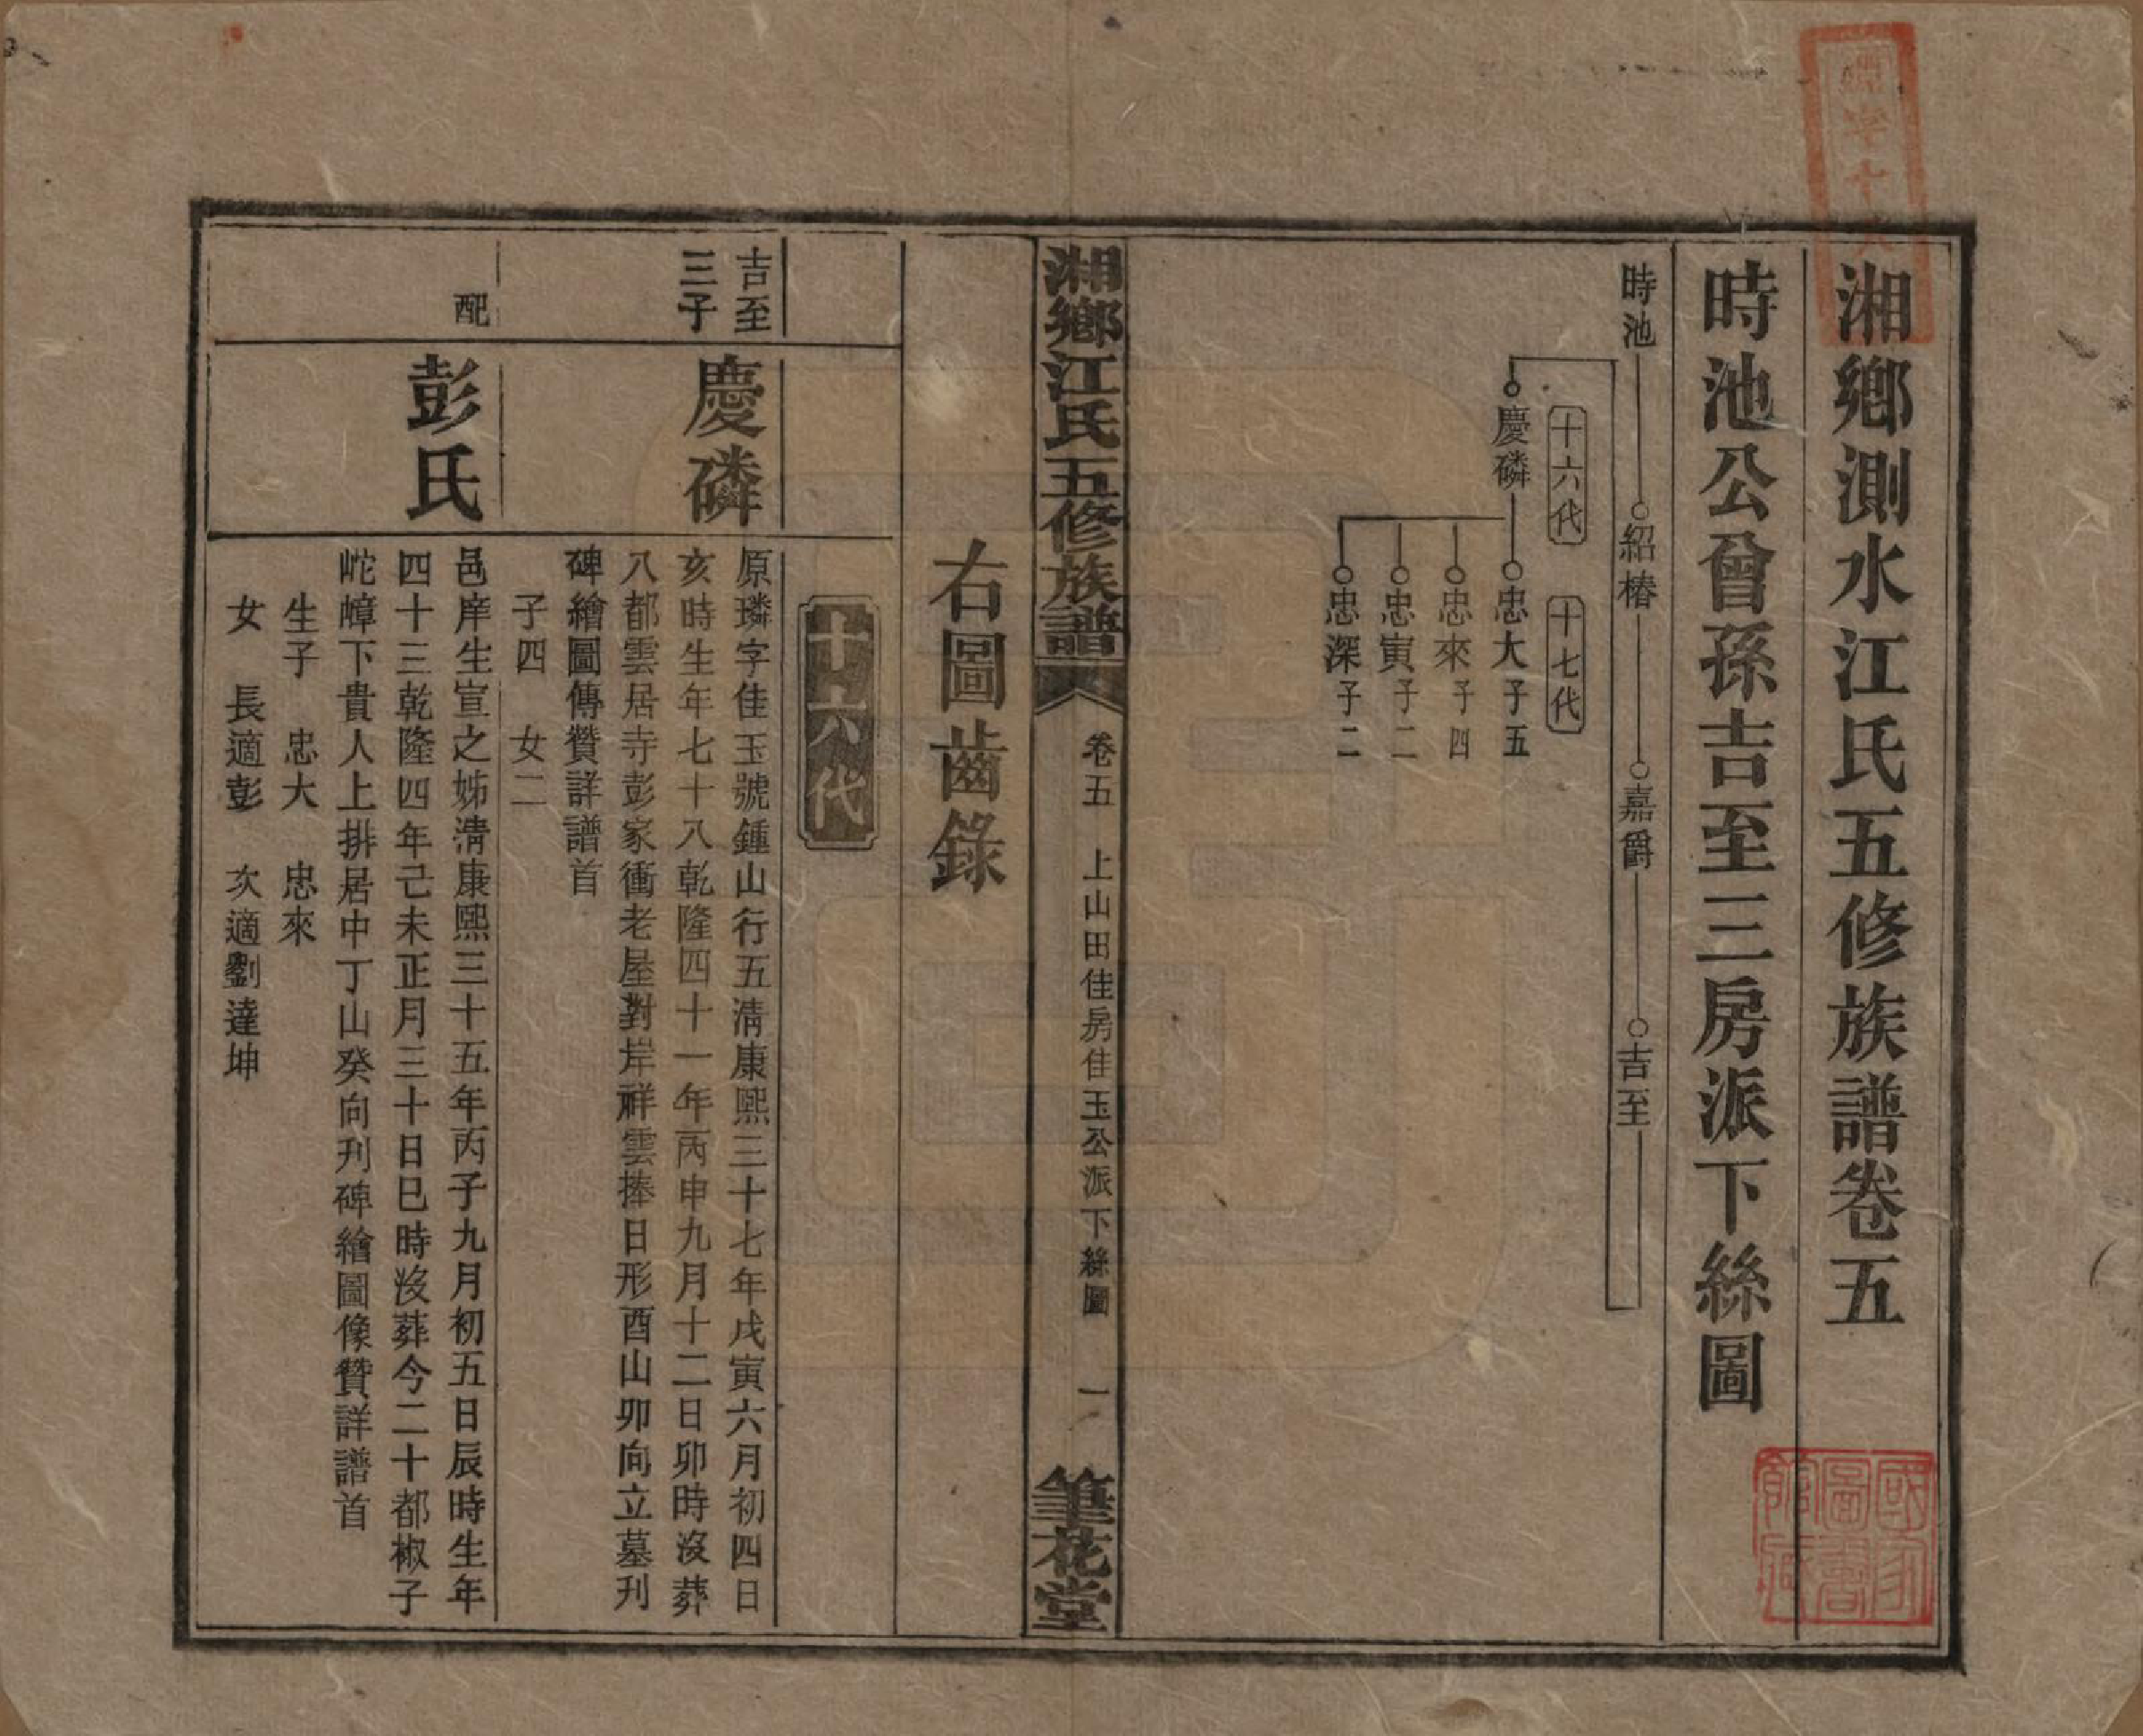 湘鄉測水江氏五修族譜卷五
時池公曾孫吉至三房派下絲圖
時池 紹椿 嘉爵 吉至
十六代 十七代
慶磷 忠大 子五
忠來 子四
忠寅 子二
忠深 子二
湘鄉江氏五修族譜 卷五 上山田佳房佳玉公派下絲圖 一 筆花堂
右圖齒錄
十六代
吉至
三子
慶磷
原璘字佳玉號鍾山行五清康熙三十七年戊寅六月初四日
亥時生年七十八乾隆四十一年丙申九月十二日卯時沒葬
八都雲居寺彭家衝老屋對岸祥雲捧日形酉山卯向立墓刋
碑繪圖傳贊詳譜首
子四 女二
配
彭氏
邑庠生宣之姊清康熙三十五年丙子九月初五日辰時生年
四十三乾隆四年己未正月三十日巳時沒葬今二十都椒子
岮嶂下貴人上排居中丁山癸向刋碑繪圖像贊詳譜首
生子 忠大 忠來
女 長適彭 次適劉達坤
國家圖書館藏